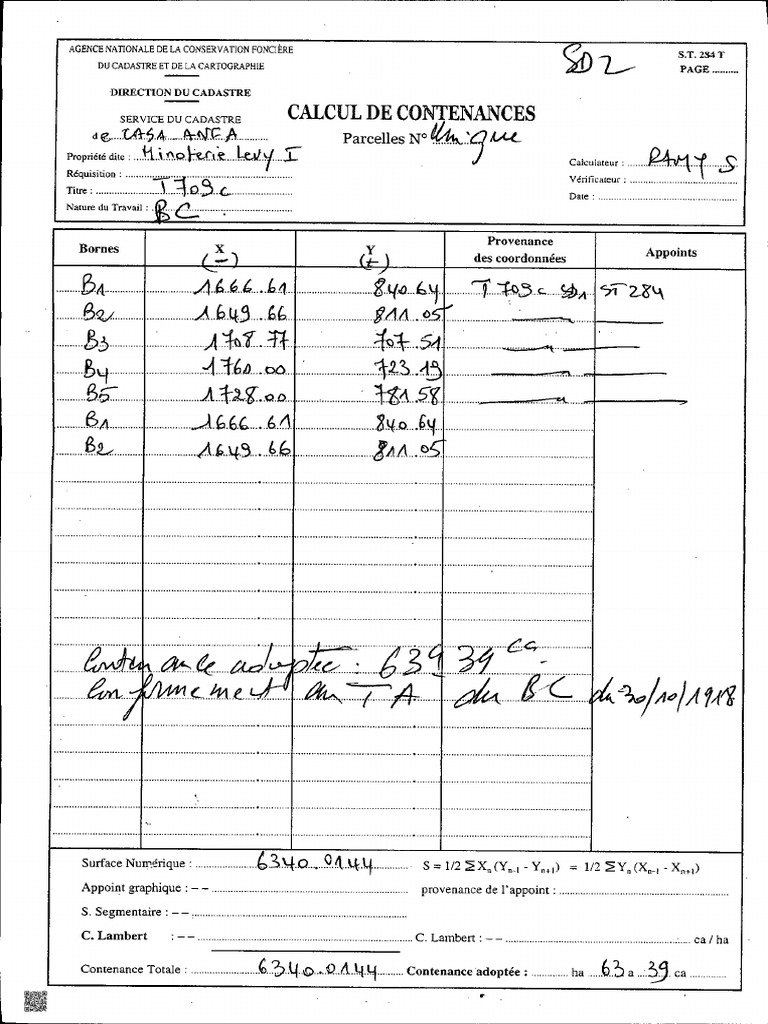 AGENCE NATIONALE DE LA CONSERVATION FONCIÈRE
DU CADASTRE ET DE LA CARTOGRAPHIE
DIRECTION DU CADASTRE
SERVICE DU CADASTRE
de CASA ANFA
Propriété dite : Minoterie Levy I
Réquisition :
Titre : T 709c
Nature du Travail : BC
SD2
CALCUL DE CONTENANCES
Parcelles N° Unique
S.T. 284 T
PAGE
Calculateur : RAMY S
Vérificateur :
Date :
Bornes X (-) Y (+) Provenance des coordonnées Appoints
B1 1666.61 840.64 T 709c SD1 ST 284
B2 1649.66 811.05
B3 1708.77 707.51
B4 1760.00 723.19
B5 1728.00 781.58
B1 1666.61 840.64
B2 1649.66 811.05
Contenance adoptée : 63a 39 ca
Conformement au TA du BC du 30/10/1918
Surface Numérique : 6340.0144 S = 1/2 ∑Xn (Yn-1 - Yn+1) = 1/2 ∑Yn (Xn-1 - Xn+1)
Appoint graphique : -- provenance de l'appoint :
S. Segmentaire : --
C. Lambert : -- C. Lambert : -- ca / ha
Contenance Totale : 6340.0144 Contenance adoptée : ha 63 a 39 ca